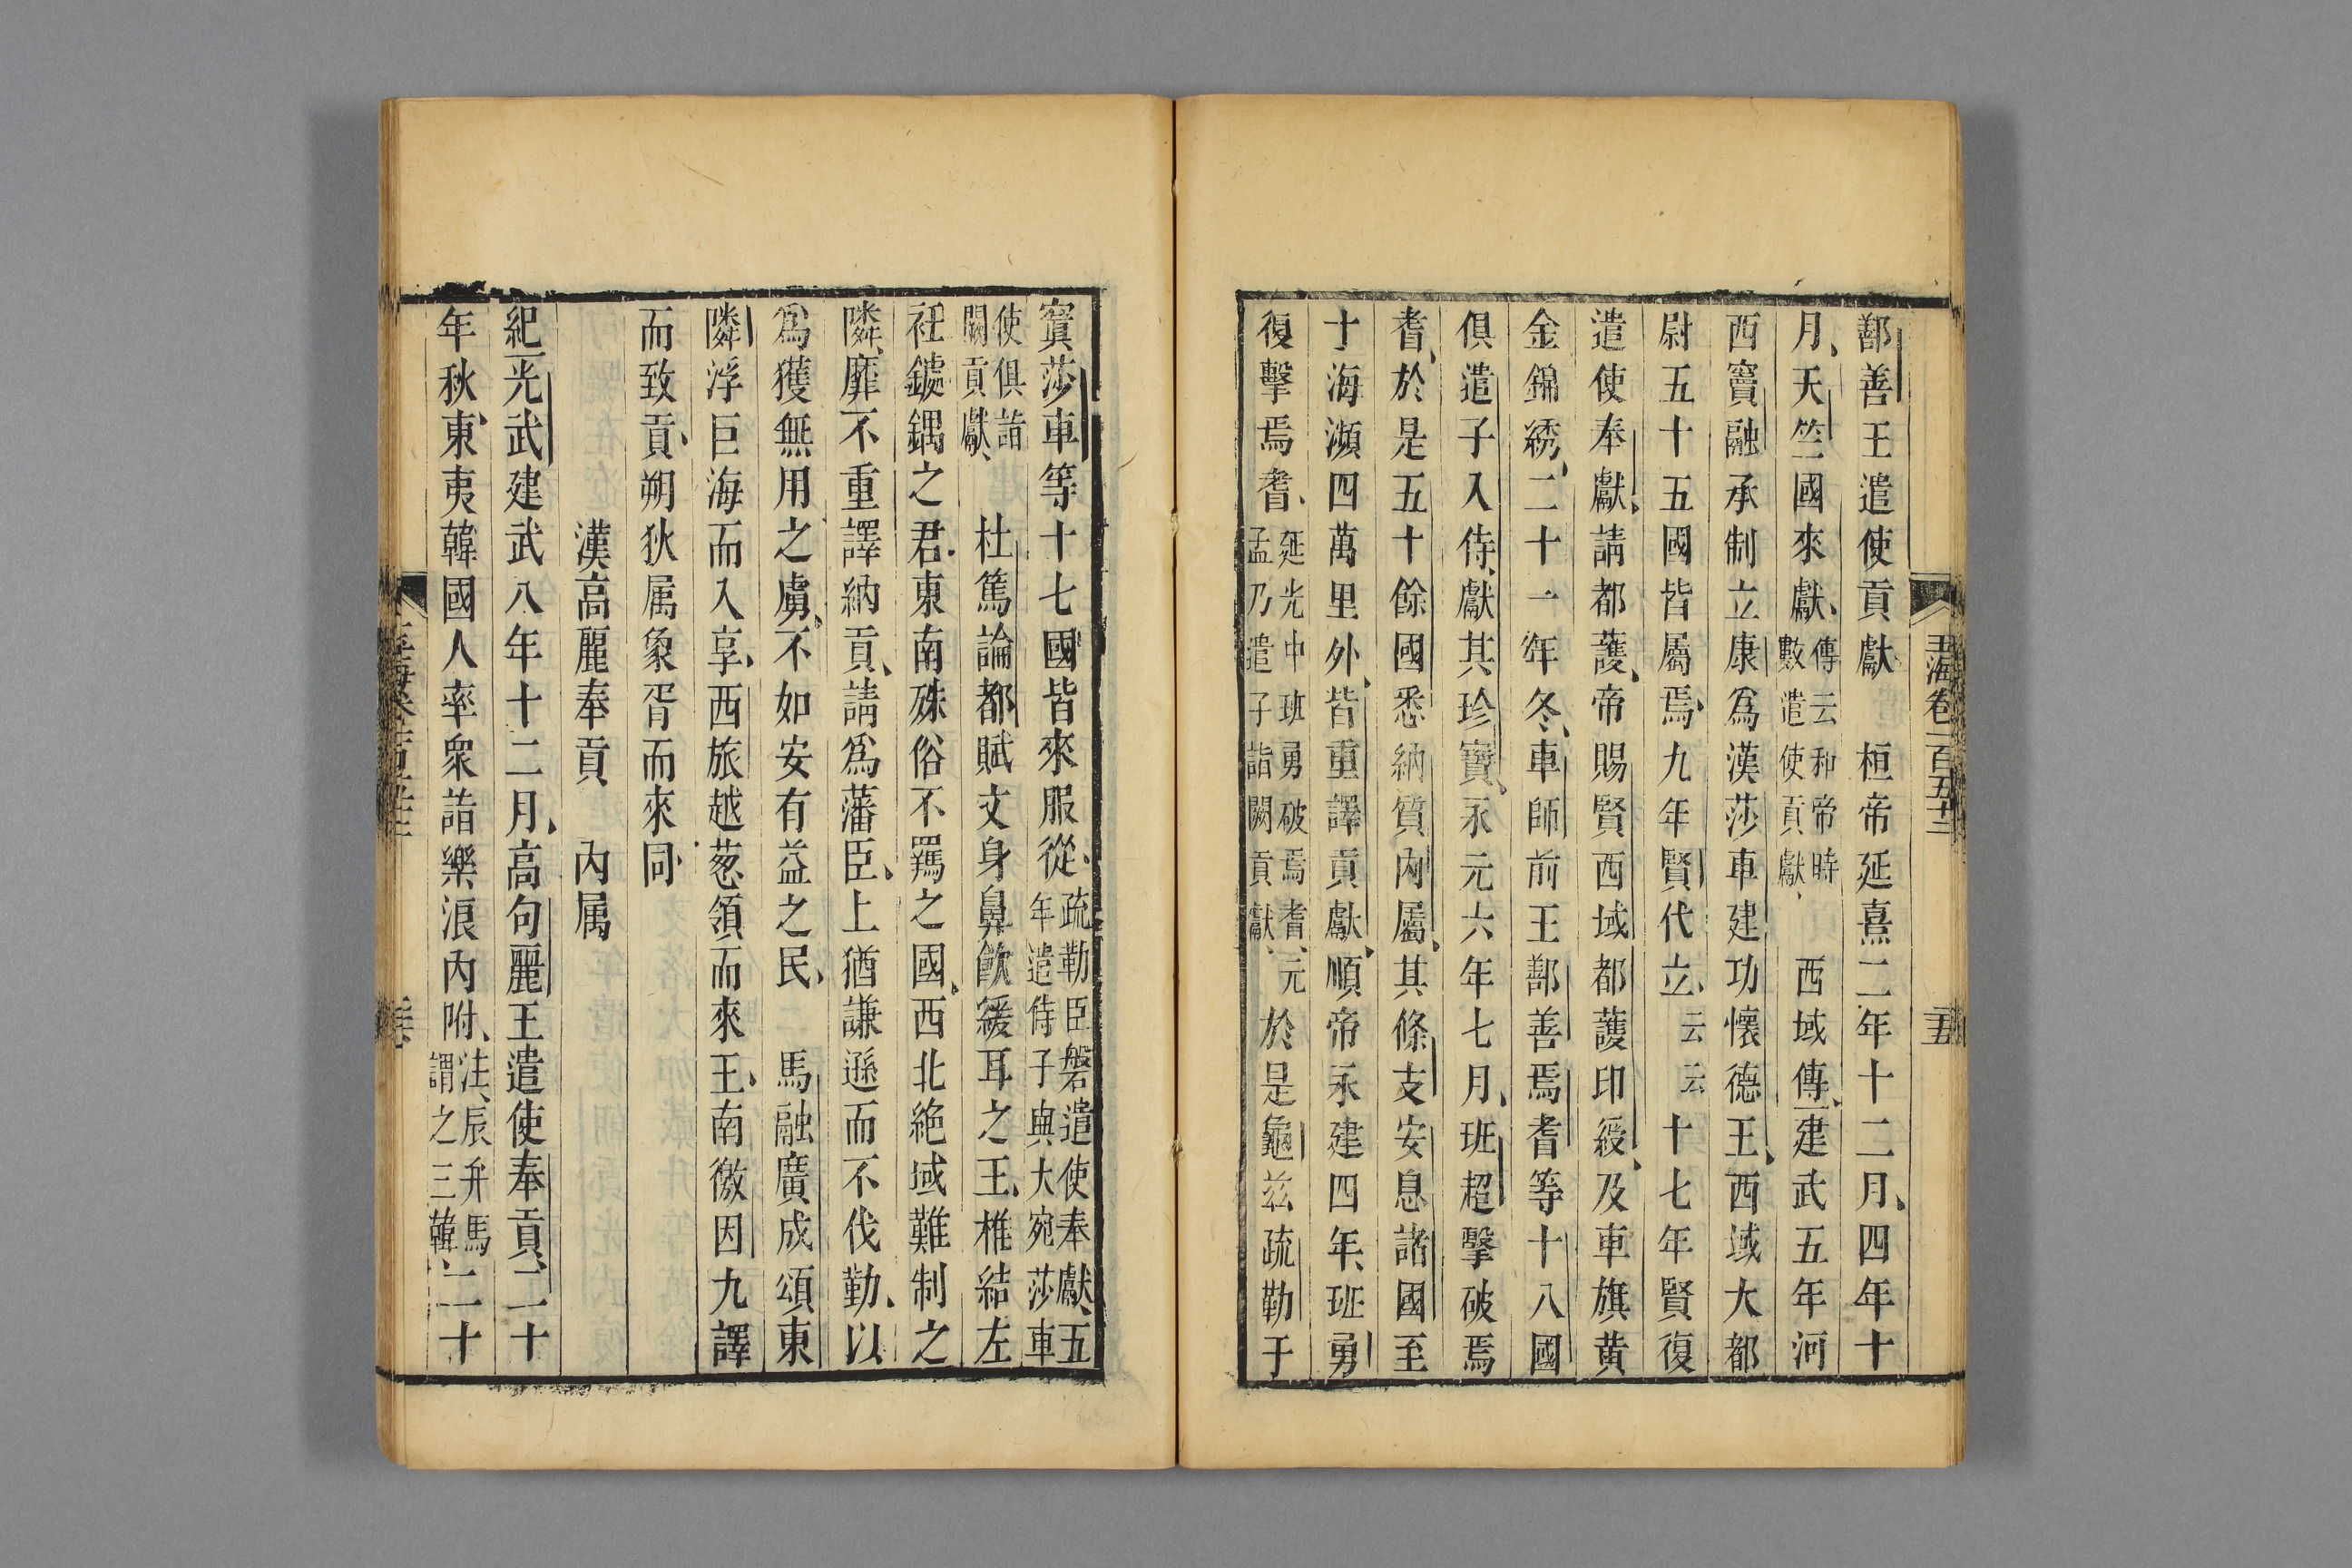 玉海卷一百五十二
鄯善王遣使貢獻 桓帝延熹二年十二月四年十
月天竺國來獻傳云和帝時數遣使貢獻 西域傳建武五年河
西竇融承制立康爲漢莎車建功懷德王西域大都
尉五十五國皆屬焉九年賢代立云云十七年賢復
遣使奉獻請都護帝賜賢西域都護印綬及車旗黃
金錦綉二十一年冬車師前王鄯善焉耆等十八國
俱遣子入侍獻其珍寶永元六年七月班超擊破焉
耆於是五十餘國悉納質內屬其條支安息諸國至
于海瀕四萬里外皆重譯貢獻順帝永建四年班勇
復擊焉耆延光中班勇破焉耆元孟乃遣子詣闕貢獻於是龜兹疏勒于
窴莎車等十七國皆來服從疏勒臣磐遣使奉獻五年遣侍子與大宛莎車
使俱詣闕貢獻 杜篤論都賦文身鼻飮緩耳之王椎結左
衽鐻鍝之君東南殊俗不羈之國西北絶域難制之
隣靡不重譯納貢請爲藩臣上猶謙遜而不伐勤以
爲獲無用之虜不如安有益之民 馬融廣成頌東
隣浮巨海而入享西旅越葱領而來王南徼因九譯
而致貢朔狄属象胥而來同
漢高麗奉貢 內属
紀光武建武八年十二月高句麗王遣使奉貢二十
年秋東夷韓國人率衆詣樂浪內附注辰弁馬謂之三韓二十